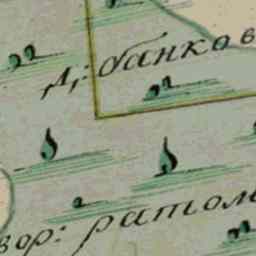 Д: банков
вор: ратом